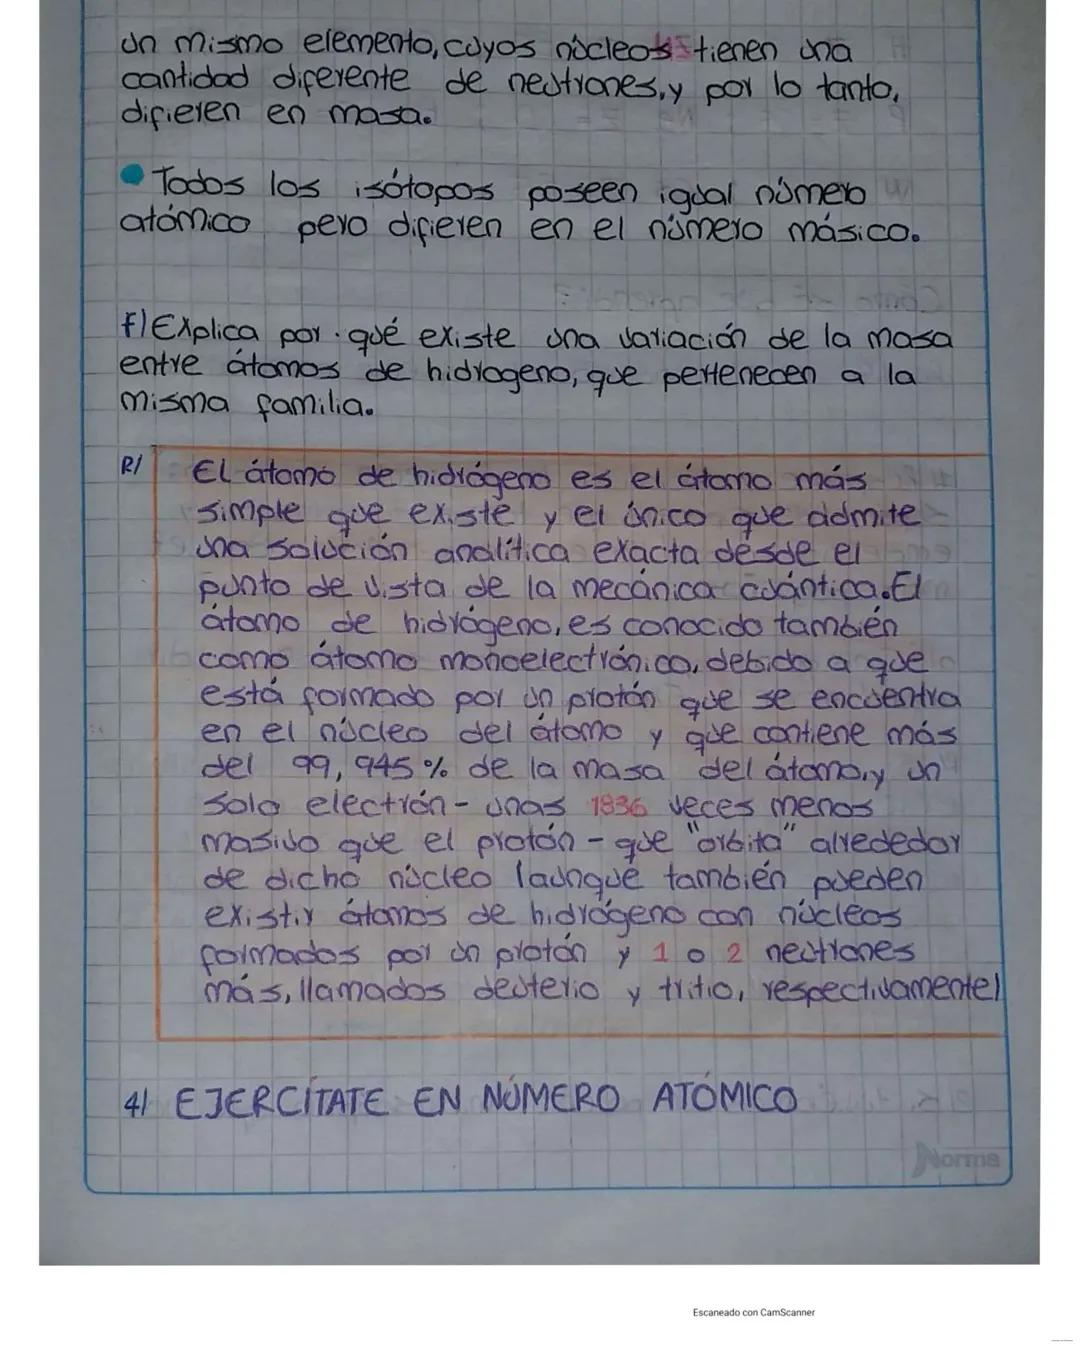 un mismo elemento, cuyos núcleos tienen una
cantidad diferente de neutrones, y por lo tanto,
difieren en masa.
Todos los isótopos poseen igual número
atómico pero difieren en el número másico.
f) Explica por qué existe una variación de la masa
entre átomos de hidrogeno, que pertenecen a la
misma familia.
R/ El átomo de hidrógeno es el átomo más
simple que existe y el único que admite
una solución analítica exacta desde el
punto de vista de la mecánica cuántica. El
átomo de hidrógeno, es conocido también
como átomo monoelectrónico, debido a que
está formado por un protón que se encuentra
en el núcleo del átomo y que contiene más
del 99,945% de la masa del átomo, y un
solo electrón - unas 1836 veces menos
masivo que el protón - que "orbita" alrededor
de dicho núcleo (aunque también pueden
existir átomos de hidrógeno con núcleos
formados por un protón y 1 o 2 neutrones
más, llamados deuterio y tritio, respectivamente)
4) EJERCÍTATE EN NÚMERO ATÓMICO
Norma
Escaneado con CamScanner